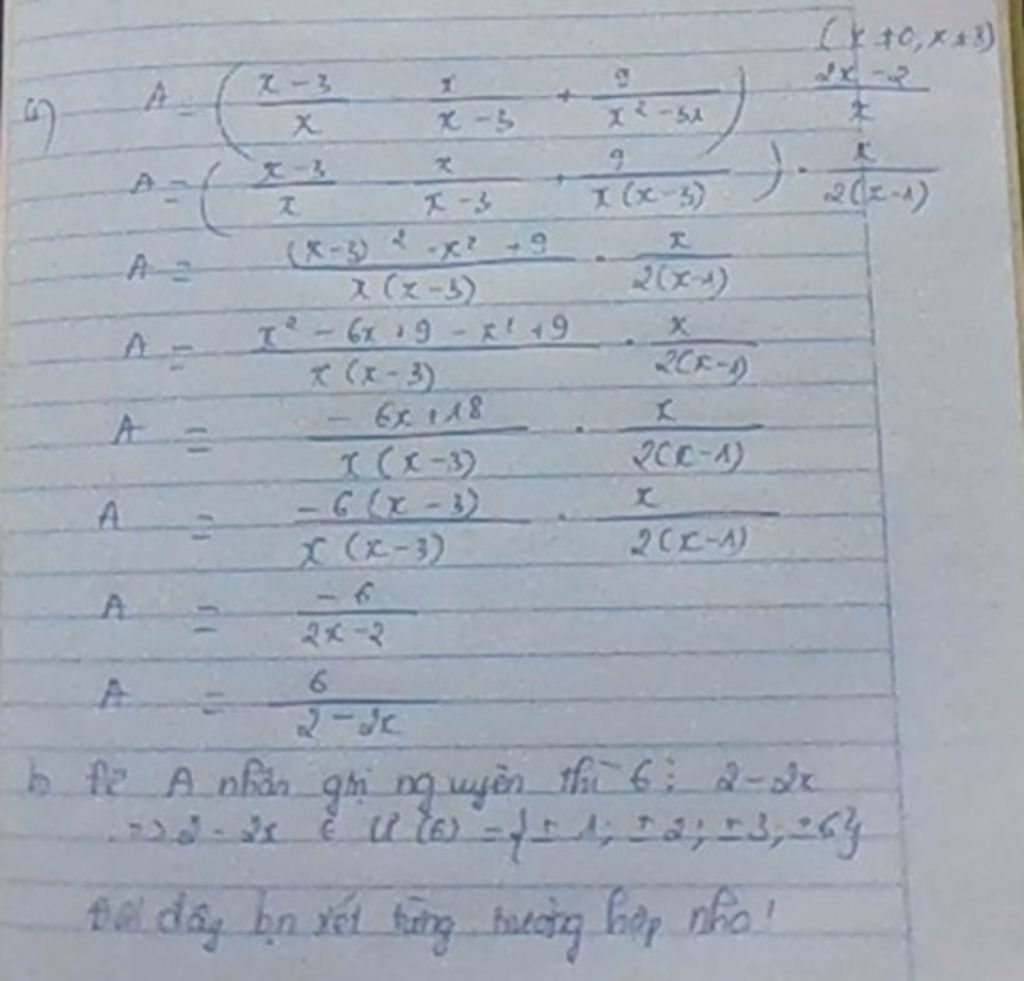 (x ≠ 0, x ≠ 3)
a) A = ( (x - 3)/x - x/(x - 3) + 9/(x² - 3x) ) : (2x - 2)/x
A = ( (x - 3)/x - x/(x - 3) + 9/(x(x - 3)) ) . x/(2(x - 1))
A = ((x - 3)² - x² + 9)/(x(x - 3)) . x/(2(x - 1))
A = (x² - 6x + 9 - x² + 9)/(x(x - 3)) . x/(2(x - 1))
A = (- 6x + 18)/(x(x - 3)) . x/(2(x - 1))
A = (- 6(x - 3))/(x(x - 3)) . x/(2(x - 1))
A = (- 6)/(2x - 2)
A = 6/(2 - 2x)
b Để A nhận gtri nguyên thì 6 ⋮ 2 - 2x
=> 2 - 2x ∈ Ư(6) = {± 1; ± 2; ± 3; ± 6}
đây bn xét từng trường hợp nha!